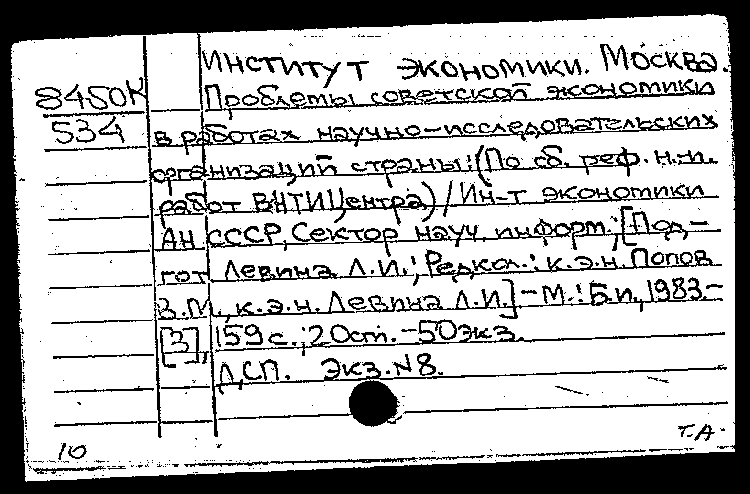 Институт экономики. Москва.
8450К Проблемы советской экономики
534 в работах научно-исследовательских
организаций страны: (По сб. реф. н.-и.
работ ВНТИЦентра) / Ин-т экономики
АН СССР, Сектор науч. информ.; [Под-
гот. Левина Л.И.; Редкол.: к.э.н. Попов
В.М., к.э.н. Левина Л.И.] - М.: Б.и., 1983.-
[3], 159 с.; 20 см. - 50 экз.
ДСП. Экз. №8.
Т.А.
10